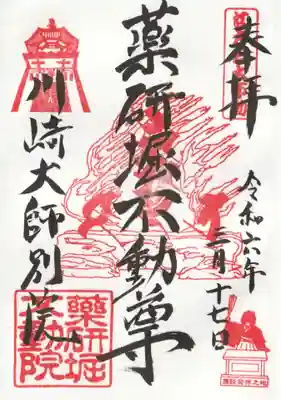 奉拝
令和六年
三月十七日
薬研堀不動尊
川崎大師別院
薬研堀
不動院
講談発祥之地